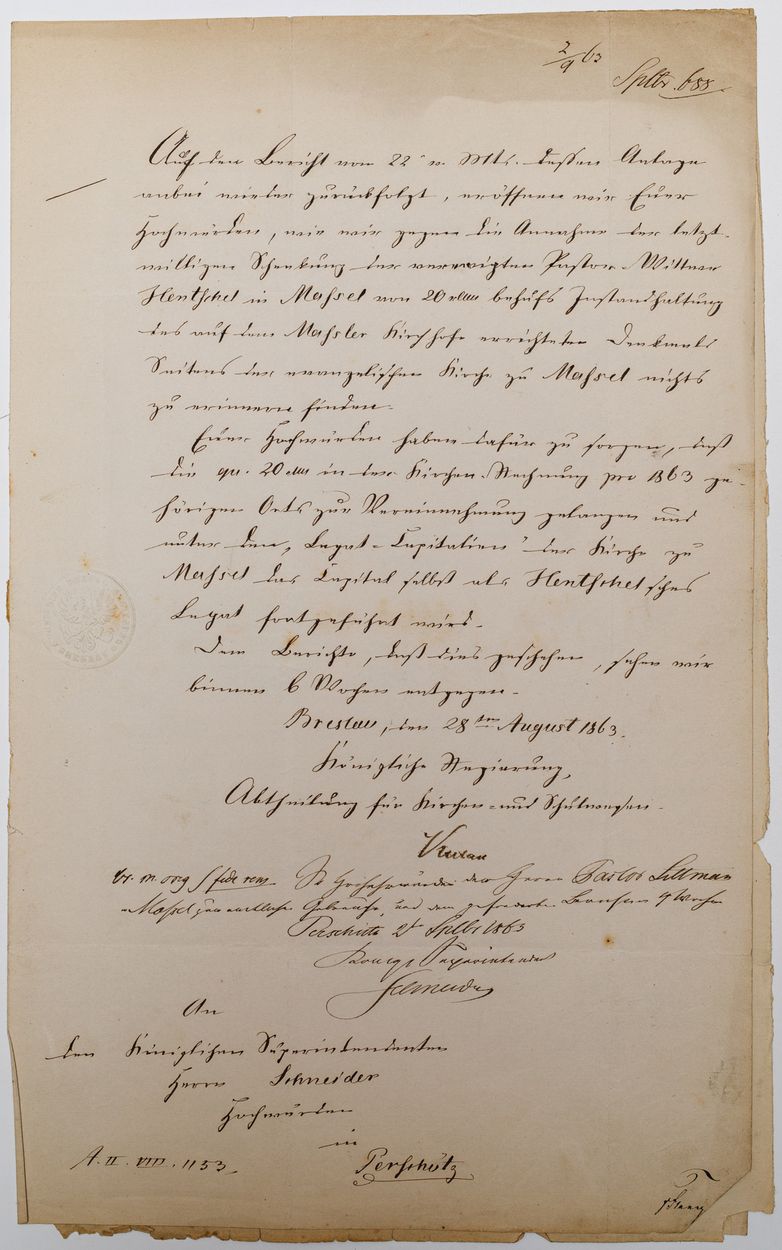 2/9 63
Splbr. 688.
Auf den Bericht vom 22. v. Mts. dessen Anlage
anbei wieder zurückfolgt, eröffnen wir Euer
Hochwürden, wie wir gegen die Annahme der letzt-
willigen Schenkung der verewigten Pastor Wittwe
Hentschel in Massel von 20 behufs Instandhaltung
des auf dem Massler Kirchhofe errichteten Denkmals
Seitens der evangelischen Kirche zu Massel nichts
zu erinnern finden.
Euer Hochwürden haben dafür zu sorgen, daß
die qu. 20 in der Kirchen-Rechnung pro 1863 ge-
hörigen Orts zur Vereinnahmung gelangen und
unter den „Legat-Capitalien" der Kirche zu
Massel das Capital selbst als Hentschel'sches
Legat fortgeführt wird.
Dem Berichte, daß dies geschehen, sehen wir
binnen 6 Wochen entgegen.
Breslau, den 28ten August 1863.
Königliche Regierung,
Abtheilung für Kirchen- und Schulwesen.
br. m. orig. s. fide rem. Sr Hochehrwürden dem Herrn Pastor
Massel zum amtlichen Gebrauche, und dem geforderten 4 Wochen
Perschütz 2t Splbr 1863
Königl. Superintendent
Schneider
An
den Königlichen Superintendenten
Herrn Schneider
Hochwürden
in
Perschütz
A. II. VIII. 1153.